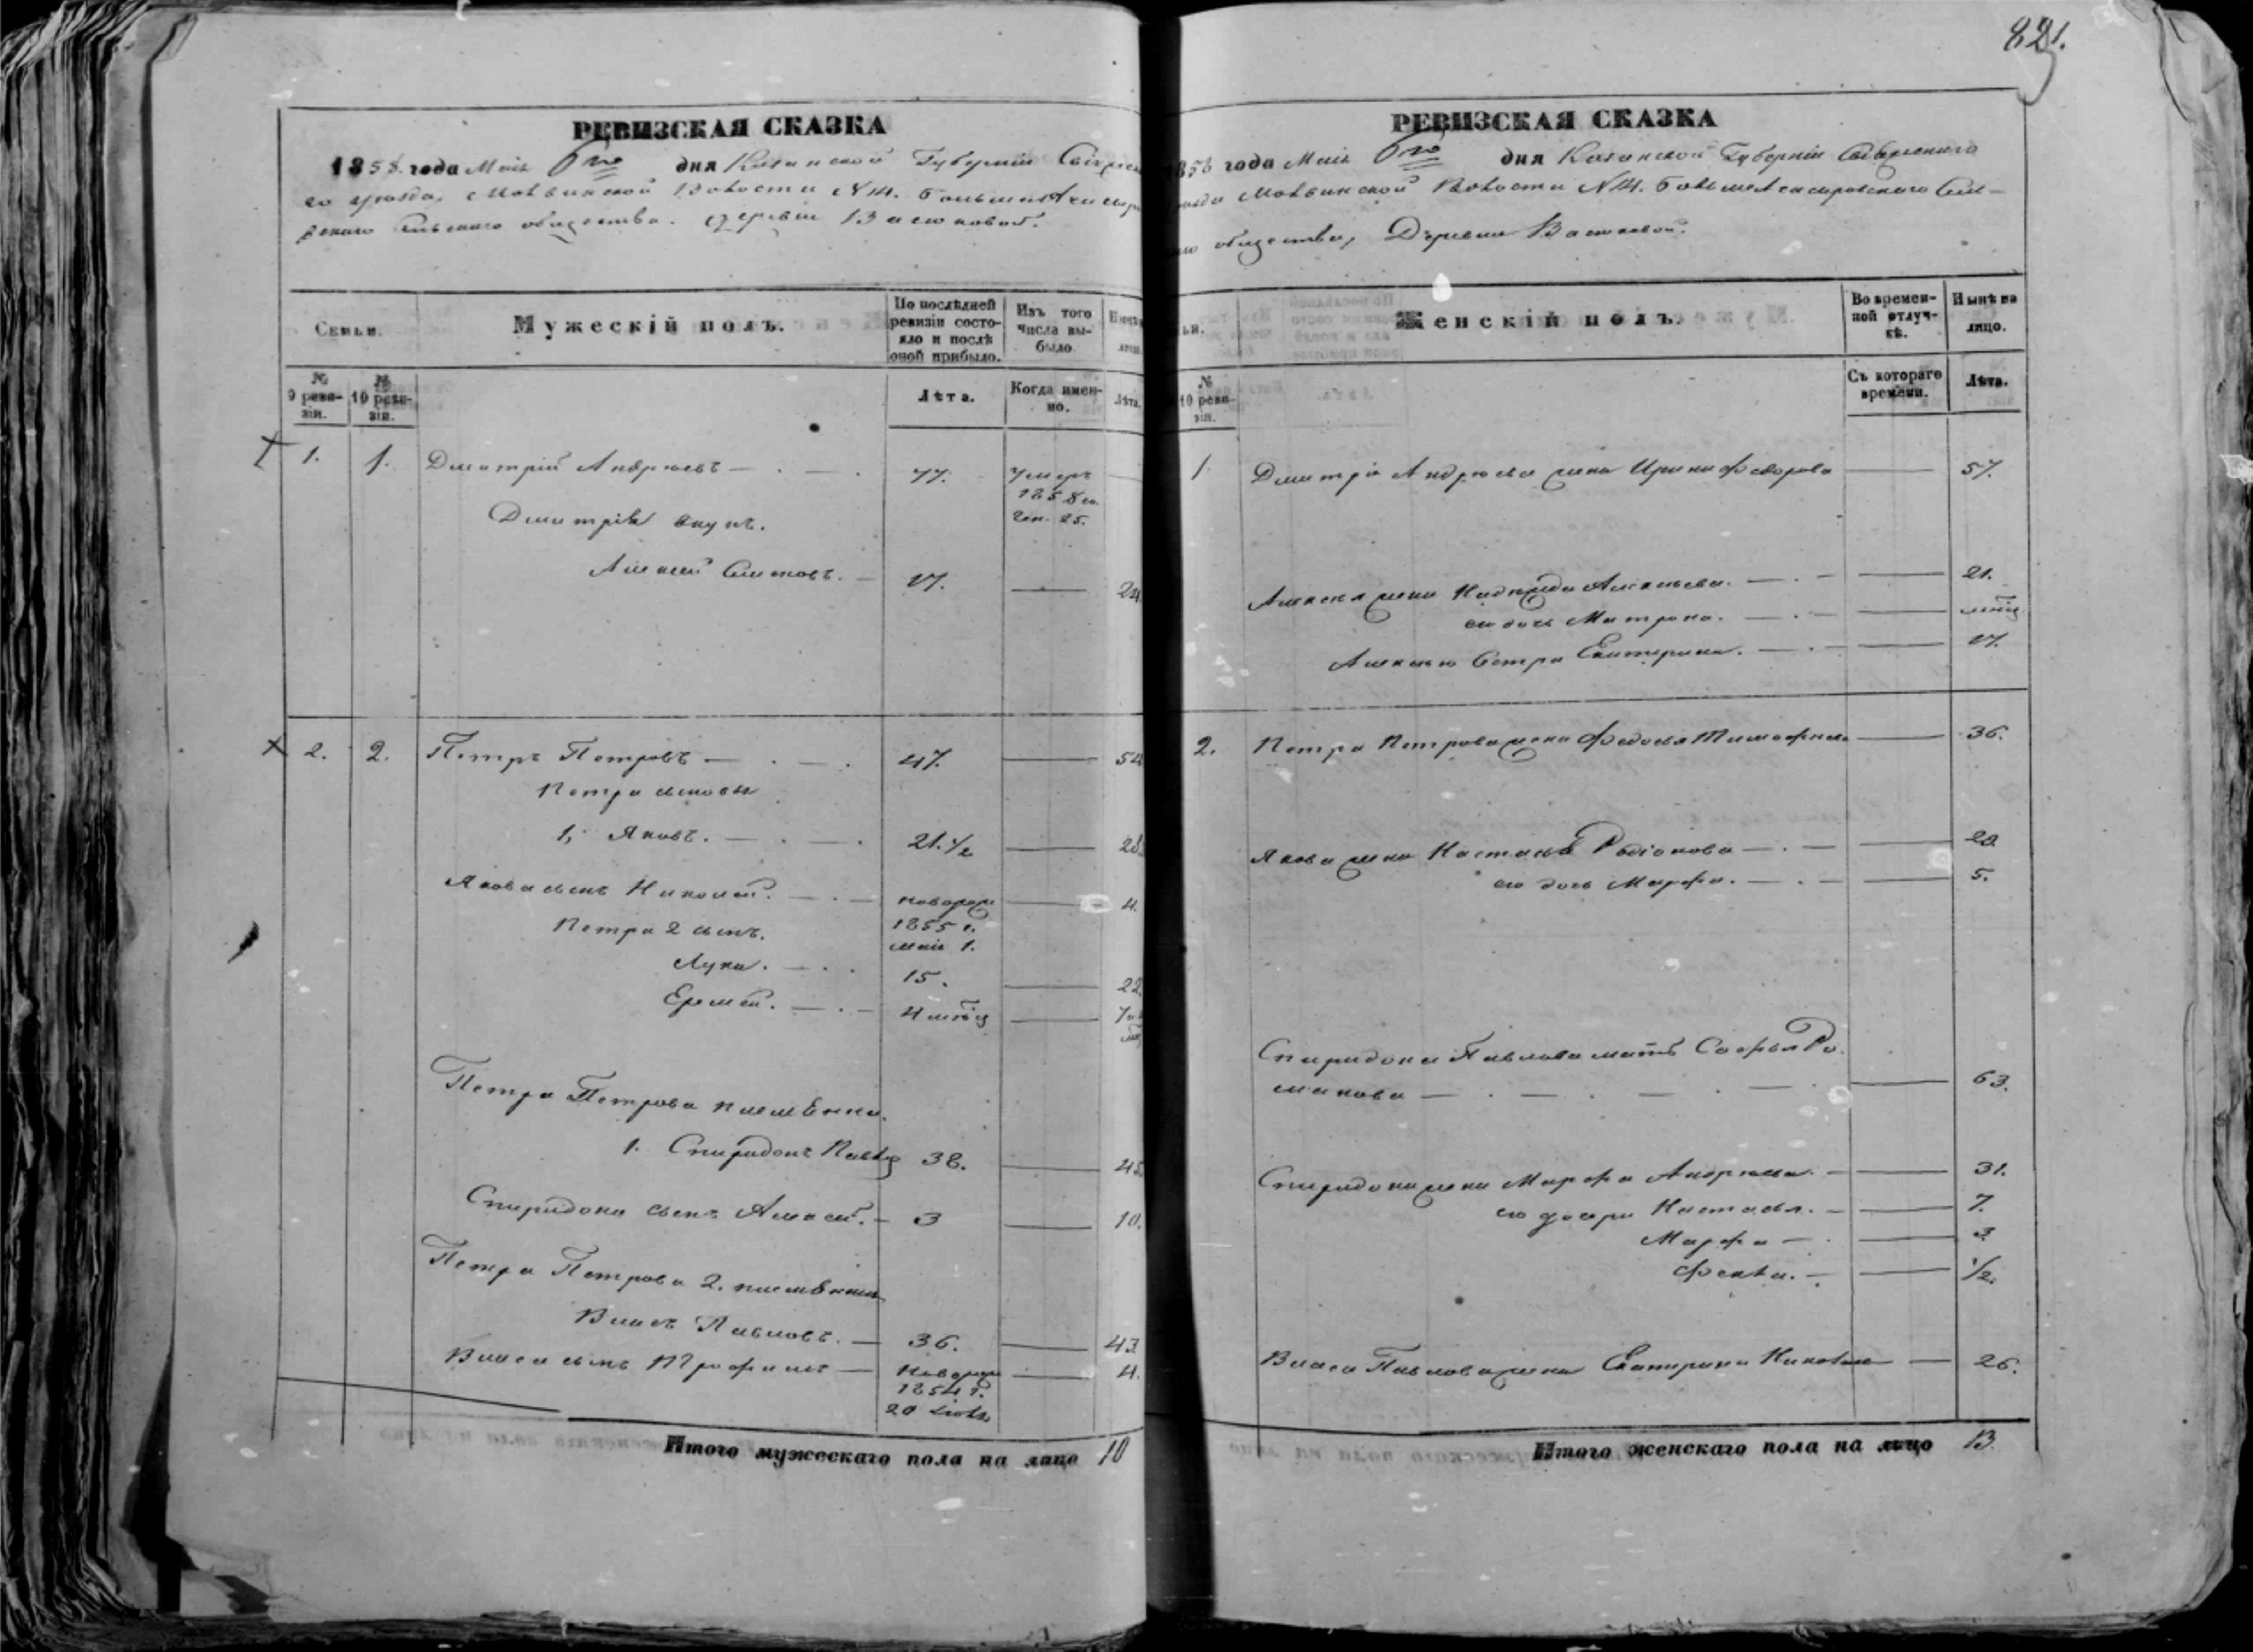 821.
РЕВИЗСКАЯ СКАЗКА
1858. года Маія 6го дня Казанской Губерніи
го уѣзда,
Сельскаго общества. Деревни Васюковой.
Семьи.
Мужескій полъ.
По послѣдней ревизіи состояло и послѣ оной прибыло.
Изъ того числа выбыло
№ 9 ревизіи.
№ 10 ревизіи.
Лѣта.
Когда именно.
Лѣта.
1. 1. Дмитрій Андреевъ 77. Умеръ 1858 го. Ген. 25.
Дмитрія внукъ.
Алексей Семеновъ. 17. 24
2. 2. Петръ Петровъ 47. 54
Петра сыновья
1, Яковъ. 21 1/2 28
Якова сынъ Николай. новорож 1855 г. маія 1. 4.
Петра 2 сынъ.
Лука. 15. 22
Еремей. 4 мѣсяц 7
Петра Петрова племянни.
1. Спиридонъ Павло 38. 45
Спиридона сынъ Алексей. 3 10.
Петра Петрова 2. племянникъ
Власъ Павловъ. 36. 43
Власа сынъ Трофимъ новорож 1854 г. 20 4.
Итого мужескаго пола на лицо 10
РЕВИЗСКАЯ СКАЗКА
1858 года Маія 6го дня Казанской Губерніи Свіяжскаго
общества, Деревни Васюковой.
№ 10 ревизіи.
Женскій полъ.
Во временной отлучкѣ.
Нынѣ на лицо.
Съ котораго времени.
Лѣта.
1 Дмитрія Андреева жена Ирина Федорова 57.
Алексея жена Надежда 21.
его дочь Матрона.
Алексея Сестра Екатерина. 17.
2. Петра Петрова жена Федосья Тимофеева 36.
Якова жена Настасья Родіонова 28
его дочь Марфа. 5.
Спиридона Павлова мать Софья Ро-
манова 63.
Спиридона жена Марфа Андреева. 31.
его дочери Настасья. 7.
Марфа 3
Фекла. 1/2.
Власа Павлова жена Екатерина 26.
Итого женскаго пола на лицо 13.